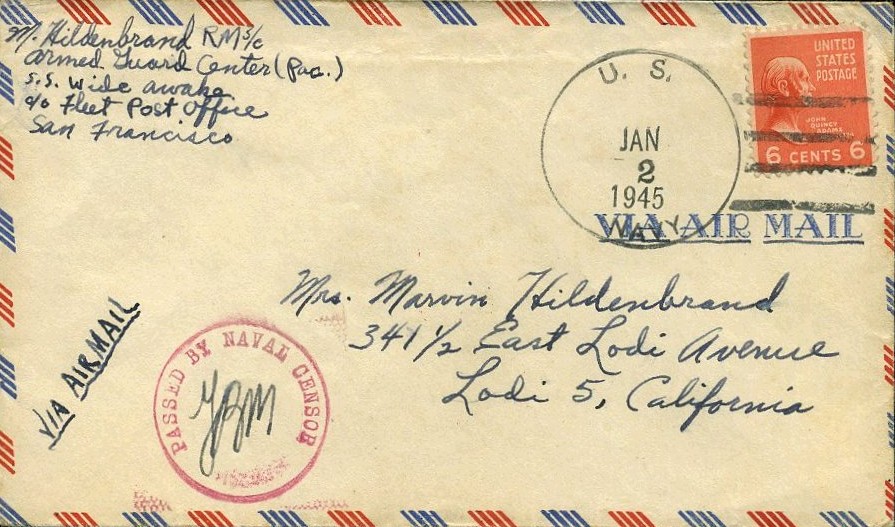 M. Hildenbrand RM 3/c
Armed Guard Center (Pac.)
S.S. Wide Awake
c/o Fleet Post Office
San Francisco
U. S.
JAN
2
1945
NAVY
UNITED
STATES
POSTAGE
JOHN
QUINCY
ADAMS
6 CENTS 6
VIA AIR MAIL
Mrs. Marvin Hildenbrand
341 1/2 East Lodi Avenue
Lodi 5, California
VIA AIRMAIL
PASSED BY NAVAL CENSOR